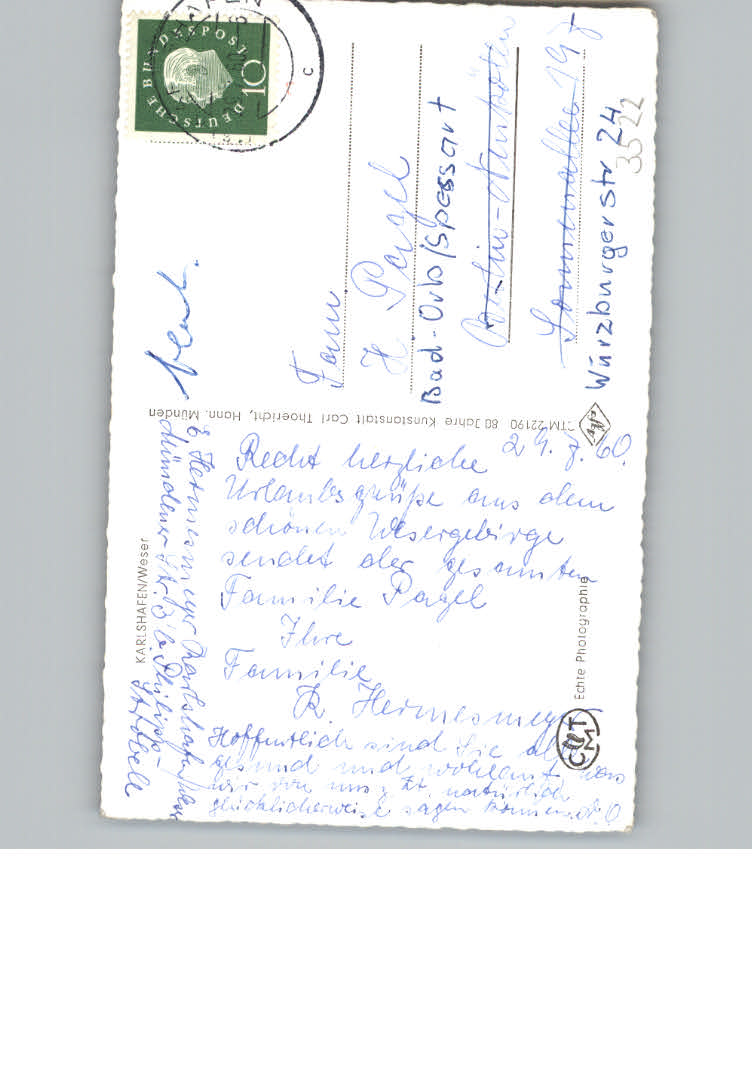 KARLSHAFEN/Weser
24. 7. 60.
Recht herzliche
Urlaubsgrüße aus dem
schönen Wesergebirge
sendet der gesamten
Familie Pagel
Ihre
Familie
R. Hermesmeyer
Hoffentlich sind Sie alle
gesund und wohlauf, was
wir von uns z. Zt. natürlich
glücklicherweise sagen können. d. O
Hermesmeyer Karlshafen/Weser
Mündener Str. 3 b. Philipp-
Ströbele
CTM-22190 80 Jahre Kunstanstalt Carl Thoericht, Hann. Münden
Echte Photographie
CMT
DEUTSCHE BUNDESPOST
10
c
Fam.
H Pagel
Bad-Orb/Spessart
Berlin-Neukölln
Sonnenallee 197
Würzburgerstr 24
3522